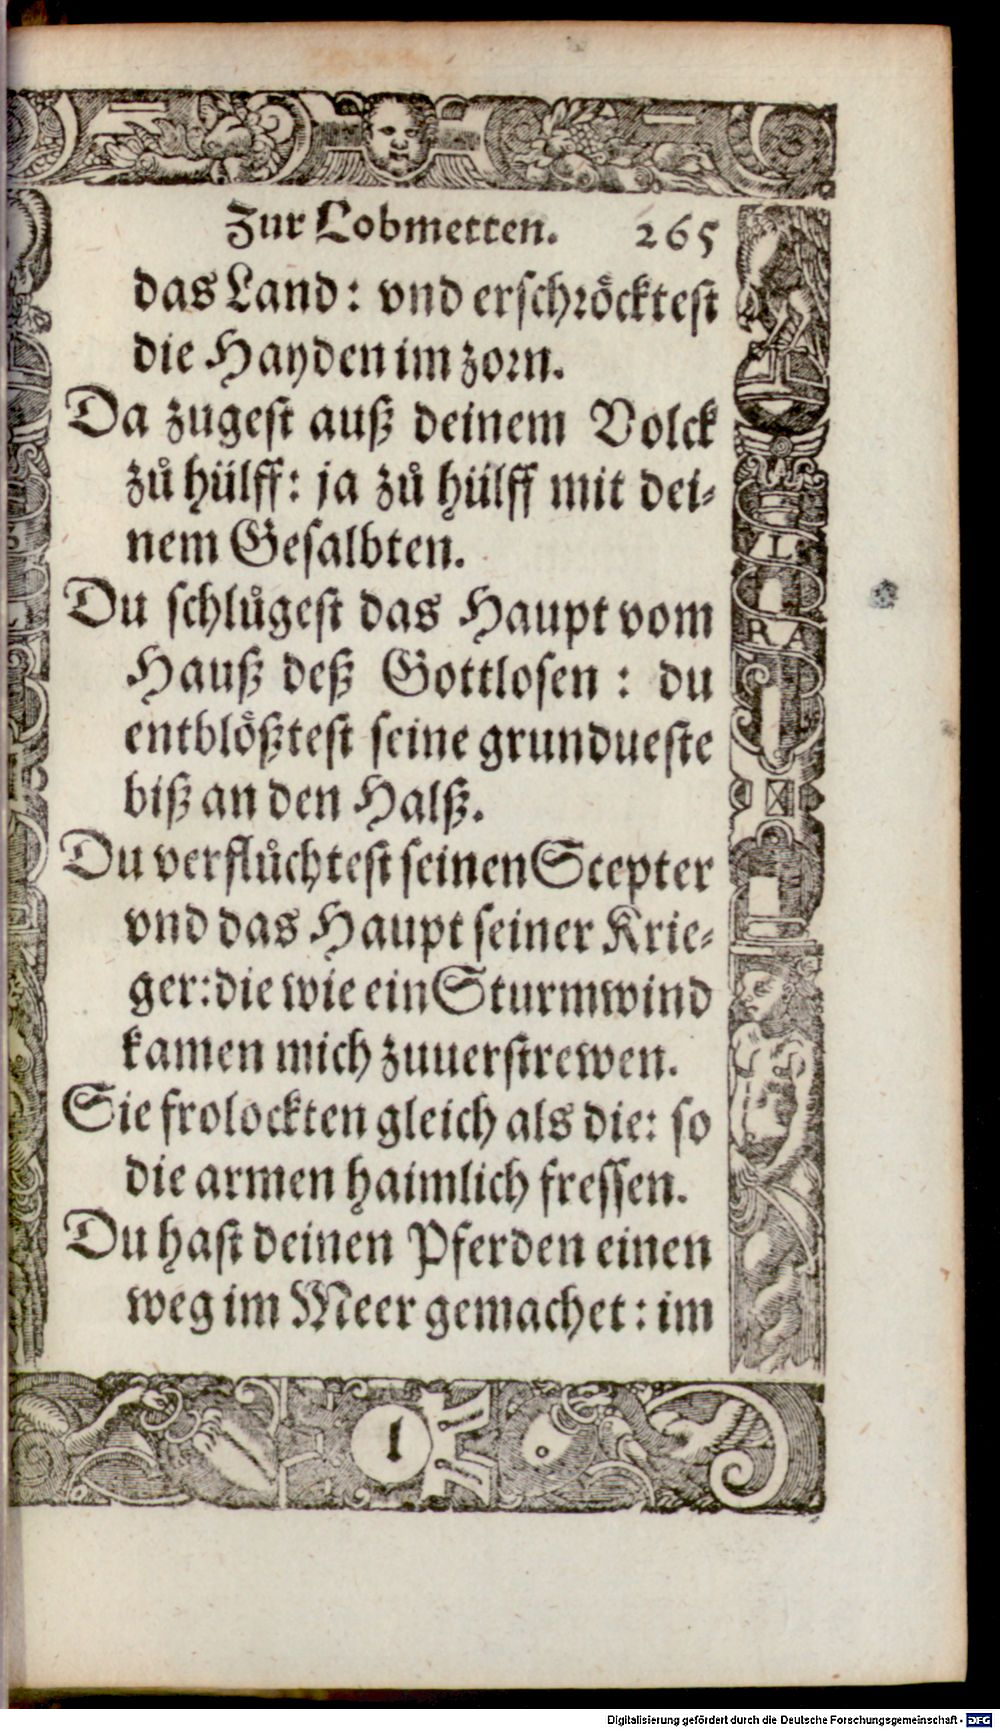 Zur Lobmetten. 265
das Land: vnd erschröcktest
die Hayden im zorn.
Da zugest auß deinem Volck
zů hülff: ja zů hülff mit dei⸗
nem Gesalbten.
Du schlůgest das Haupt vom
Hauß deß Gottlosen: du
entblößtest seine grundueste
biß an den Halß.
Du verflůchtest seinen Scepter
vnd das Haupt seiner Krie⸗
ger: die wie ein Sturmwind
kamen mich zuuerstrewen.
Sie frolockten gleich als die: so
die armen haimlich fressen.
Du hast deinen Pferden einen
weg im Meer gemachet: im
L
RA
l
Digitalisierung gefördert durch die Deutsche Forschungsgemeinschaft - DFG